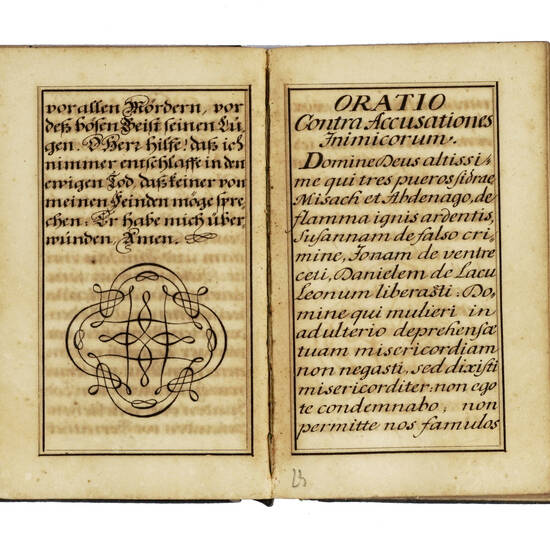 vor allen Mördern, vor
deß bösen Geist seinen Lü,
gen. O Herr hilff! daß ich
nimmer entschlaffe in den
ewigen Tod, daß keiner von
meinen Feinden möge spre,
chen: Er habe mich über,
wunden, Amen.
ORATIO
Contra Accusationes
Inimicorum.
Domine Deus altissi,
me qui tres pueros sidrac
Misach et Abdenago, de
flamma ignis ardentis,
Susannam de falso cri,
mine, Jonam de ventre
ceti, Danielem de Lacu
Leonum liberasti: Do,
mine qui mulieri in
adulterio deprehensæ
tuam misericordiam
non negasti, sed dixisti
misericorditer: non ego
te condemnabo, non
permitte nos famulos